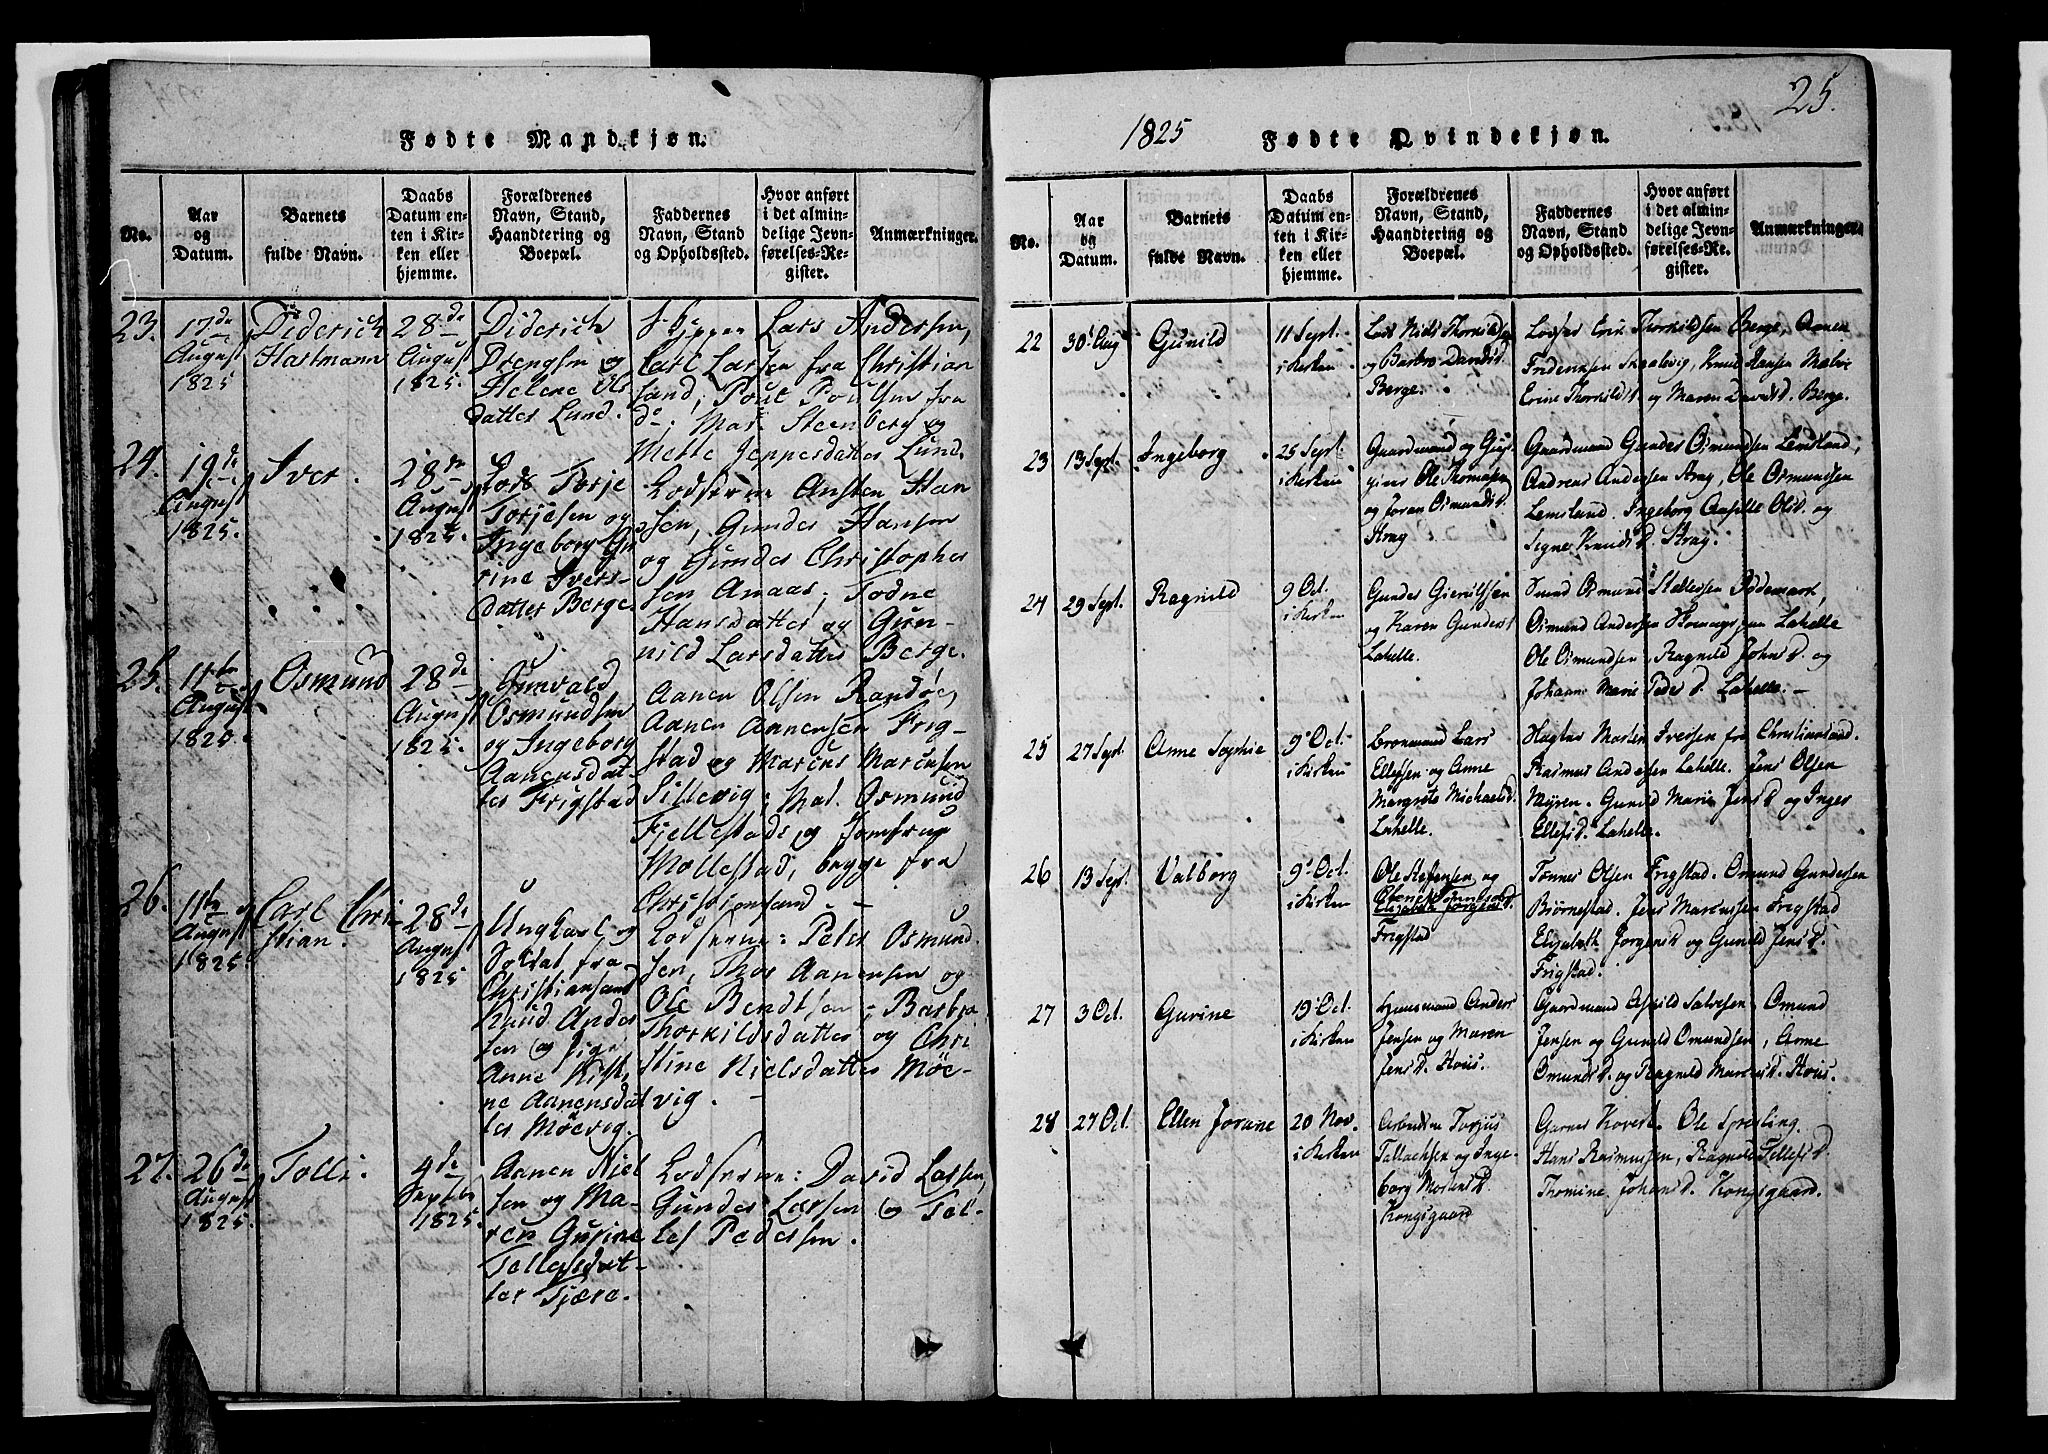 25.
Fødte Mandkjøn.
No.
Aar
og
Datum.
Barnets
fulde Navn.
Daabs
Datum en-
ten i Kir-
ken eller
hjemme.
Forældrenes
Navn, Stand,
Haandtering og
Boepæl.
Faddernes
Navn, Stand
og Opholdssted.
Hvor anført
i det almin-
delige Jevn-
førelses-Re-
gister.
Anmærkninger.
23.
17de
August
1825
Diderich
Hartmann
28de
August
1825.
Diderich
Drengsen og
Helene Ols
datter Lund.
Skipper Lars Andersen,
Carl Larsen fra Christian
sand, Poul Poulsen fra
do; Mari Steenberg og
Mette Jeppesdatter Lund.
24.
19de
August
1825.
Iver.
28de
August
1825.
Lods Torje
Torjesen og
Ingeborg Gu
rine Ivers-
datter Berge.
Lodserne Ansten Han
sen, Gunder Hansen
og Gunder Christopher
sen Aanaas, Todne
Hansdatter og Gun-
nild Larsdatter Berge.
25.
11te
August
1825.
Osmund
28de
August
1825.
Gunvald
Osmundsen
og Ingeborg
Aanensdat-
ter Frigstad
Aanen Olsen Randøe,
Aanen Aanensen Frig-
stad og Marcus Marcusen
Sillevig; Mad. Osmund
Fjellestad og Jomfrue
Møllestad, begge fra
Christiansand. -
26.
11te
August
1825.
Carl Chri
stian.
28de
August
1825
Ungkarl og
Soldat fra
Christiansand
Knud Ander
sen og Pige
Anne Kisti
ne Aanensdat
ter Møevig.
Lodserne: Peter Osmund
sen, Thor Aanensen og
Ole Bendtsen; Barbra
Thorkildsdatter og Chri
stine Nielsdatter Møe-
vig. -
27.
26de
August
1825.
Tolli.
4de
Septbr
1825.
Aanen Niel
sen og Ma-
ren Gurine
Tellefsdat-
ter Tjære.
Lodserne: David Larsen,
Gunder Larsen og Tel-
lef Pedersen.
1825
Fødte Qvindekjøn.
No.
Aar
og
Datum.
Barnets
fulde Navn.
Daabs
Datum en-
ten i Kir-
ken eller
hjemme.
Forældrenes
Navn, Stand,
Haandtering og
Boepæl.
Faddernes
Navn, Stand,
og Opholdssted.
Hvor anført
i det almin-
delige Jevn-
førelses-Re-
gister.
Anmærkninger.
22
30 Aug
Gunild
11 Sept.
i Kirken
Lods Niels Thorkildsen
og Barbro Davidsd.
Berge.
Lodser Erik Thorkildsen Berge, Aanen
Fredriksen Skaalevig, Knud Hansen
Erine Thorkildsd. og Maren Davidsd. Berge.
23
13 Sept.
Ingeborg
25 Sept.
i Kirken
Gaardmand og Giest-
giver Ole Thomasen
og Joran Osmundsd.
Strag
Gaardmand Gunder Osmundsen Lemsland,
Andreas Andersen Strag, Ole Osmundsen
Lemsland. Ingeborg Olsd. og
Signe Knudsd. Strag.
24
29 Sept.
Ragnild
9 Oct.
i Kirken
Gunder Gierulfsen
og Karen Gundersd.
Lahelle.
Osmund Stellefsen Oddemark,
Osmund Andersen Lahelle
Ole Osmundsen, Ragnild Johnsd. og
Johanne Marie Pedersd. Lahelle. -
25
27 Sept.
Anne Sophie
9 Oct.
i Kirken
Lars
Ellefsen og Anne
Margrete Michaelsd.
Lahelle.
Morten Iversen fra Christiansand.
Rasmus Andersen Lahelle. Jens Olsen
Myren. Gunild Marie Jensd. og Inger
Ellefsd. Lahelle.
26
13 Sept.
Valborg
9 Oct.
i Kirken
Ole Steffensen og
Elizabeth Jorgensd.
Frigstad
Tønnes Olsen Frigstad. Omund Gundersen
Bjørnestad. Jens Marcussen Frigstad
Elizabeth Jorgensd. og Gunild Jensd.
Frigstad.
27
3 Oct.
Gurine
19 Oct.
i Kirken
Huusmand Anders
Jensen og Maren
Jensd. Høies.
Gaardmand Salvesen, Omund
Jensen og Gunuld Omundsen, Anne
Omundsd. og Ragnild Marcusd. Høies.
28
27 Oct.
Ellen Jorane
20 Nov.
i Kirken
Torjus
Tallachsen og Inge-
borg Mortensd.
Kongsgaard
Ole Sperling.
Hans Rasmussen, Ragnild Tellefsd.
Thomine Johansd. Kongsgaard.